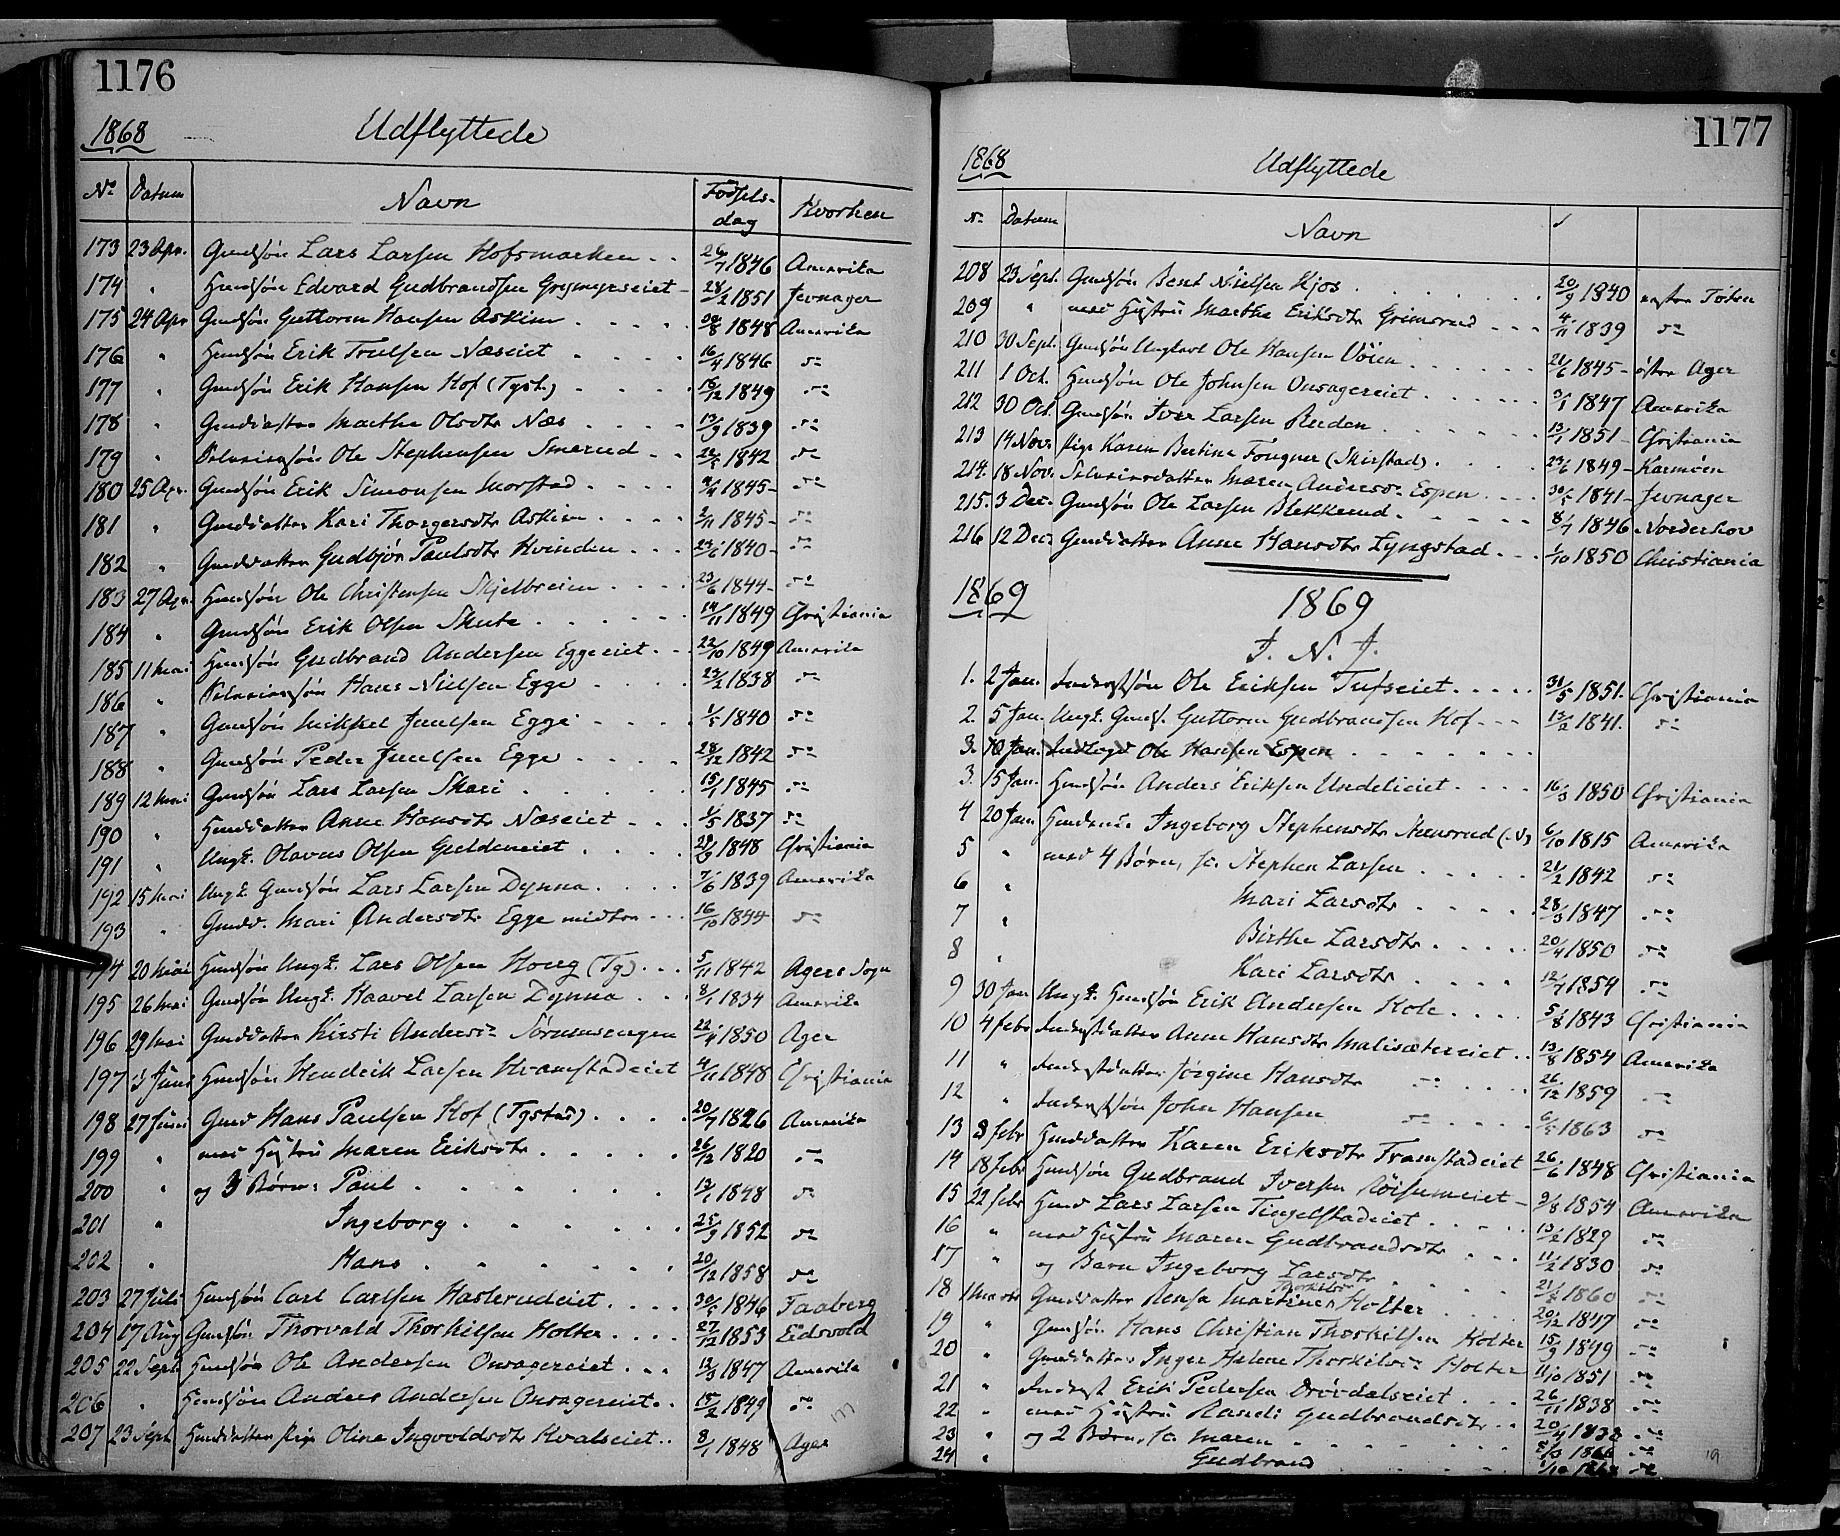 1176
1868 Udflyttede
No Datum Navn Fødsels-dag Hvorhen
173 23 Apr. Gmdsøn Lars Larsen Hofsmarken 26/7 1846 Amerika
174 " Hmdsøn Edvard Gudbrandsen Grymyrseiet 28/2 1851 Jevnager
175 24 Apr Gmdsøn Guttorm Hansen Askim /8 1848 Amerika
176 " Hmdsøn Erik Truelsen Næseiet 16/4 1846 do
177 " Gmdsøn Erik Hansen Hof (Tgst.) 16/12 1849 do
178 " Gmddatter Marthe Olsdtr Næs 13/9 1839 do
179 " Ole Stephensen Smerud 1842 do
180 25 Apr. Gmdsøn Erik Simonsen Morstad 1845 do
181 " Gmddatter Kari Thorgersdtr Askim 2/11 1845 do
182 " Gmddatter Gudbjør Paulsdtr Hvinden 23/6 1840 do
183 27 Apr. Hmdsøn Ole Christensen Skjelbreien 23/6 1844 do
184 " Gmdsøn Erik Olsen Skute 14/11 1849 Christiania
185 11 Mai Hmdsøn Gudbrand Andersen Eggeeiet 22/10 1849 Amerika
186 " Hans Nielsen Egge 23/2 1838 do
187 " Gmdsøn Mikkel Juulsen Egge 1/5 1840 do
188 " Gmdsøn Peder Juulsen Egge 28/12 1842 do
189 12 Mai Gmdsøn Lars Larsen Skari 15/1 1845 do
190 " Hmddatter Anne Hansdtr Næseiet 1/5 1837 do
191 " Ungk. Olavus Olsen Guldeneiet 1848 Christiania
192 15 Mai Ungk. Gmdsøn Lars Larsen Dynna 7/6 1839 Amerika
193 " Gmdd. Mari Andersdtr Egge midtre 16/10 1844 do
194 20 Mai Hmdsøn Ungk. Lars Olsen Horg (Tg) 5/11 1842 Agers Sogn
195 26 Mai Gmdsøn Ungk. Haavel Larsen Dynna 8/1 1834 Amerika
196 29 Mai Gmddatter Kirsti Andersdr Sørumsengen 22/4 1850 Ager
197 Juni Hmdsøn Hendrik Larsen Hvamstadeiet 4/11 1848 Christiania
198 27 Juni Gmd Hans Paulsen Hof (Tgstad) 20/7 1826 Amerika
199 " med Hustru Maren Eriksdtr 26/12 1820 do
200 " og 3 Børn: Paul 12/1 1848 do
201 " Ingeborg 25/9 1852 do
202 " Hans 20/12 1858 do
203 27 Juli Hmdsøn Carl Carlsen Haslerudeiet 30/5 1846 Faaberg
204 17 Aug Gmdsøn Thorvald Thorkilsen Holter 27/12 1853 Eidsvold
205 22 Sept Hmdsøn Ole Andersen Onsagereiet 13/3 1847 Amerika
206 " Hmdsøn Anders Andersen Onsagereiet 15/2 1849 do
207 23 Sept Hmddatter Pige Oline Ingvoldsdtr Hvalseiet 8/1 1848 Ager
177
1177
1868 Udflyttede
No Datum Navn
208 23 Sept. Gmdsøn Bent Nielsen Kjos 20/9 1840 vestre Toten
209 " med Hustru Marthe Eriksdtr Grimsrud 4/11 1839 do
210 30 Sept. Gmdsøn Ungkarl Ole Hansen Vøien 21/6 1845 østre Ager
211 1 Oct. Hmdsøn Ole Johnsen Onsagereiet 1847 Amerika
212 30 Oct. Gmdsøn Iver Larsen Ruden 13/1 1851 Christiania
213 14 Nov. Pige Karen Bertine Fougner (Skirstad) 23/6 1849 Karmøen
214 18 Nov. Maren Andersdr Espen 1841 Jevnager
215. 3 Dec. Gmdsøn Ole Larsen Blekkerud 8/7 1846 Norderhov
216 12 Dec. Gmddatter Anne Hansdtr Lyngstad /10 1850 Christiania
1869 1869
I. N. J.
1. 2 Jan. Inderstsøn Ole Eriksen Tufseiet 31/5 1851. Christiania
2. 5 Jan. Ungk. Gmds. Guttorm Gudbrandsen Hof 13/2 1841. do
3. 10 Jan. Ole Hansen Espen
3. 15 Jan. Hmdsøn Anders Eriksen Undelieiet 16/3 1850 Christiania
4 20 Jan. Ingeborg Stephensdtr 6/10 1815 Amerika
5 " med 4 Børn, sc. Stephen Larsen 21/2 1842 do
6 " Mari Larsdtr 28/3 1847 do
7 " Birthe Larsdtr 20/4 1850 do
8 " Kari Larsdtr 12/7 1854 do
9 30 Jan Ungk. Hmdsøn Erik Andersen Hole 5/8 1843 Christiania
10 4 Febr Inderstdatter Anne Hansdtr Malisætereiet 13/8 1854 Amerika
11 " Inderstdatter Jørgine Hansdtr do 26/12 1859 do
12 " Inderstsøn John Hansen do 1863 do
13 8 Febr Hmddatter Karen Eriksdtr Framstadeiet 26/6 1848 Christiania
14 18 Febr Hmdsøn Gudbrand Iversen Røisumeiet 9/8 1854 Amerika
15 22 Febr Hmd Lars Larsen Tingelstadeiet 13/2 1829 do
16 " med Hustru Maren Gudbrandsdtr 11/2 1830 do
17 " og Barn Ingeborg Larsdtr 1860 do
18 1 Marts Gmddatter Rensa Martine Thorkilsdr Holter 20/12 1847 do
19 " Gmdsøn Hans Christian Thorkilsen Holter 15/9 1849 do
20 " Gmddatter Inger Helene Thorkilsdr Holter 11/10 1851 do
21 " Inderst Erik Pedersen Drøvdalseiet 26/11 1838 do
22 " med Hustru Randi Gudbrandsdtr 20/4 1838 do
23 " og 2 Børn, sc. Maren 1866 do
24 " Gudbrand do
19